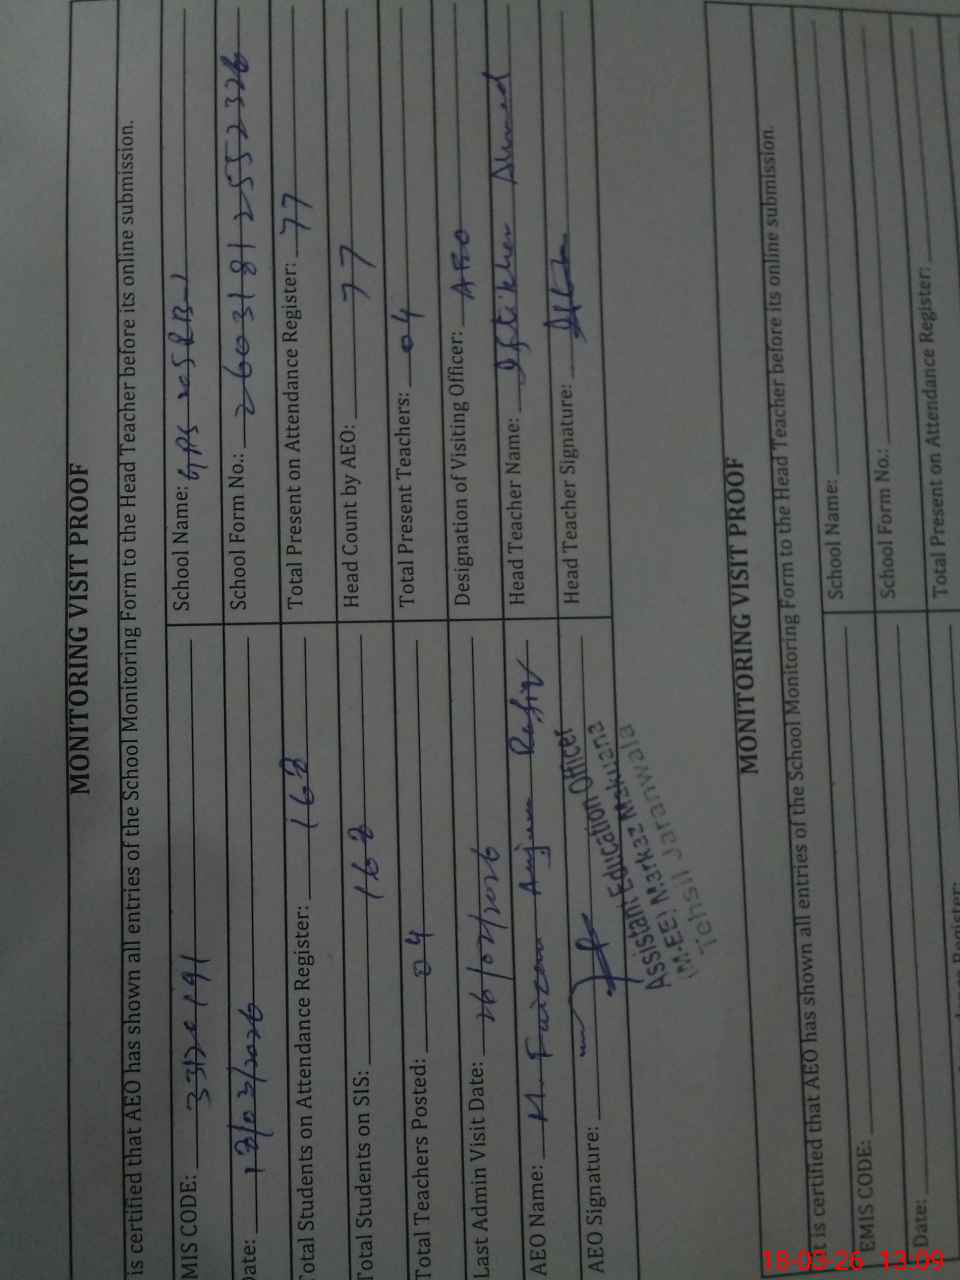 MONITORING VISIT PROOF
is certified that AEO has shown all entries of the School Monitoring Form to the Head Teacher before its online submission.
MIS CODE: 33120191 School Name: GPS 205 RB-1
Date: 18/03/2026 School Form No.: 260318125552326
Total Students on Attendance Register: 168 Total Present on Attendance Register: 77
Total Students on SIS: 168 Head Count by AEO: 77
Total Teachers Posted: 04 Total Present Teachers: 04
Last Admin Visit Date: 26/02/2026 Designation of Visiting Officer: AEO
AEO Name: M. Faizan Anjum Rafiq Head Teacher Name: Iftikhar Ahmed
AEO Signature: Head Teacher Signature:
Assistant Education Officer
(M-EE) Markaz Makuana
Tehsil Jaranwala
MONITORING VISIT PROOF
t is certified that AEO has shown all entries of the School Monitoring Form to the Head Teacher before its online submission.
EMIS CODE: School Name:
Date: School Form No.:
Total Present on Attendance Register:
18-03-26 13:09